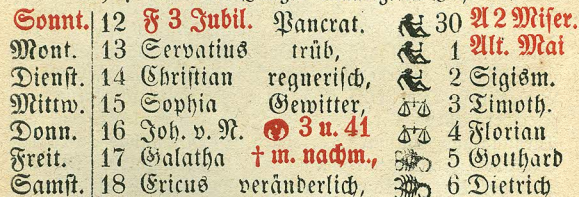 Sonnt. 12 F 3 Jubil. Pancrat. 30 A 2 Miser.
Mont. 13 Servatius trüb, 1 Alt. Mai
Dienst. 14 Christian regnerisch, 2 Sigism.
Mittw. 15 Sophia Gewitter, 3 Timoth.
Donn. 16 Joh. v. N. 3 u. 41 4 Florian
Freit. 17 Galatha † m. nachm., 5 Gotthard
Samst. 18 Ericus veränderlich, 6 Dietrich